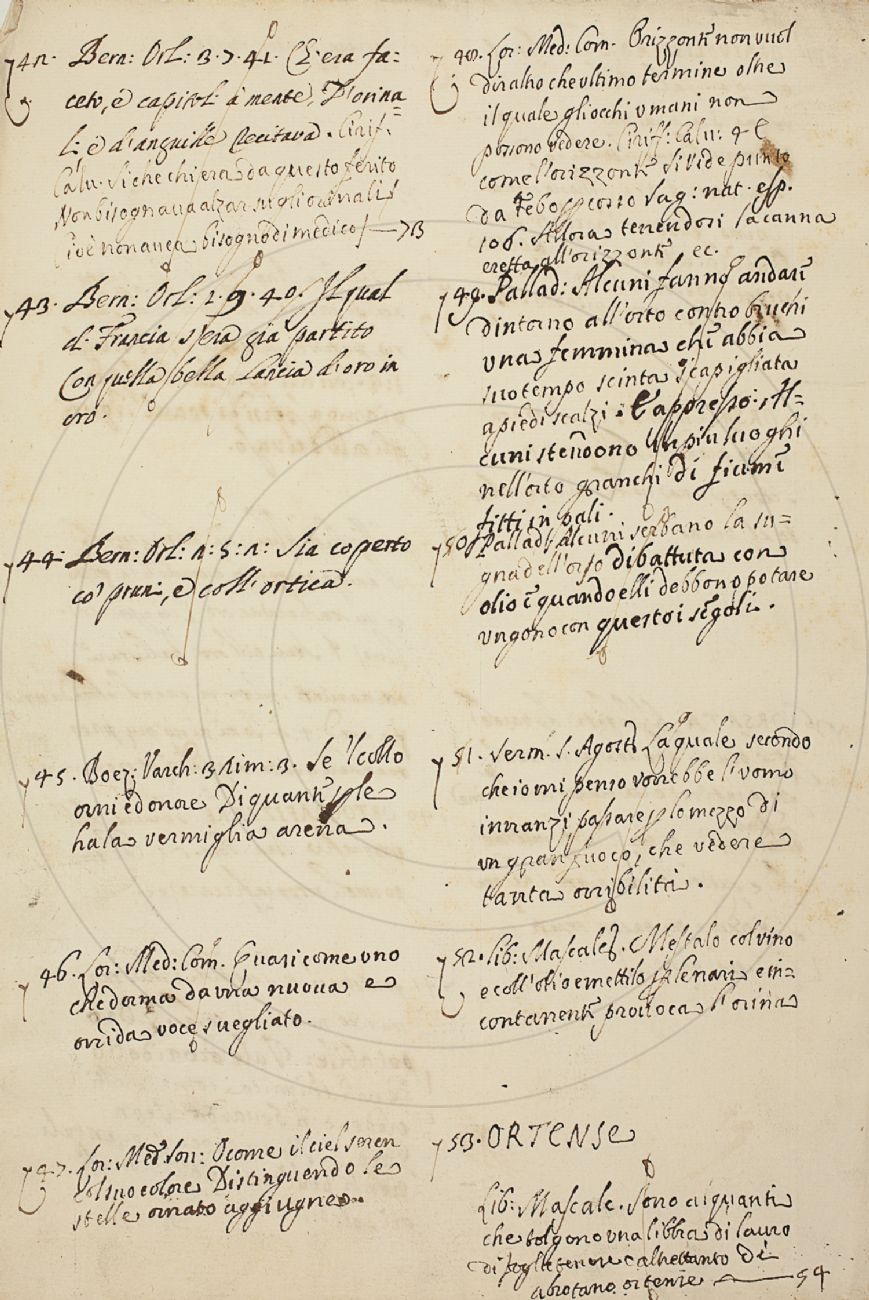 742. Bern: Orl: 3. 7. 41. Ch'era fa=
ceto, e capitoli a mente, D'orina=
li, e d'anguille recitava. Cirif.
Calu. Si che chi era da questo ferito
Non bisognaua alzar sugli orinali
Cioè non auea bisogno di medico
743. Bern: Orl: 1. 9. 40. Il qual
di Francia s'era gia partito
Con quella bella Lancia d'oro in
oro.
744. Bern: Orl: 1: 5: 1: Sia coperto
co' pruni, e coll'ortica.
745. Boez: Varch: 3 rim: 3. Se 'l collo
orni ed onore Di quante perle
ha la vermiglia arena.
746. Lor: Med: Com. Quasi come uno
che dorma da una nuoua e
orrida voce suegliato.
747. Lor: Med: Son: O come il ciel seren
col suo colore Distinguendo le
stelle ornato aggiugne.
748. Lor: Med: Com. Orizzonte non vuol
dir altro che ultimo termine oltre
il quale gli occhi umani non
possono vedere. Ciriff: Calu: 4
come l'orizzonte si vide punto
da Febo Sag: nat. esp.
106. Allora tenendosi la canna
eretta all'orizzonte ec.
749. Pallad: Alcuni fanno andare
dintorno all'orto contro bruchi
una femmina che abbia
suo tempo scinta scapigliata
a piedi scalzi. E appresso: Al=
cuni stendono in piu luoghi
nell'orto granchi di fiume
fitti in pali.
750. Pallad: Alcuni serbano la su=
gna dell'orso dibattuta con
olio e quando elli debbono potare
ungono con questo i segoli.
751. Serm. S. Agost: La quale secondo
che io mi penso vorrebbe l'uomo
innanzi passare per lo mezzo di
un gran fuoco, che vedere
tanta orribilità.
752. Lib: Mascalc. Mestalo col vino
e coll'olio e mettilo per le nari e in=
contanente prouoca l'orina
753. ORTENSE
Lib: Mascalc. Sono alquanti
che tolgono una libbra di lauro
di foglie tenere e altrettanto di
abrotano ortense 54